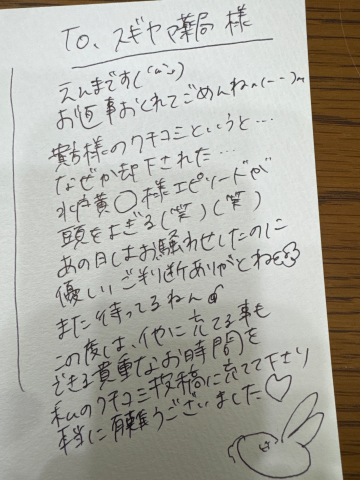 To、スギヤマ薬局 様
えんまです(´ω`)
お返事おくれてごめんねm(--)m
貴方様のクチコミというと…
なぜか却下された…
水戸黄〇様エピソードが
頭をよぎる(笑)(笑)
あの日はお騒わせしたのに
優しいご判断ありがとね
また待ってるねん
この度は、他に充てる事も
できる貴重なお時間を
私のクチコミ投稿に充てて下さり
本当に有難うございました♡